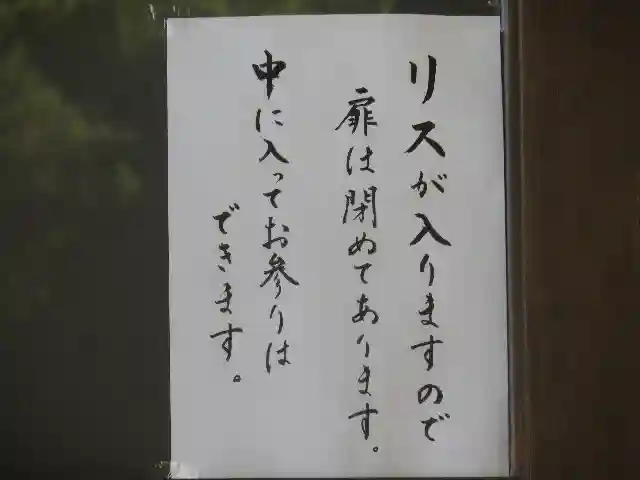 リスが入りますので
扉は閉めてあります。
中に入ってお参りは
できます。